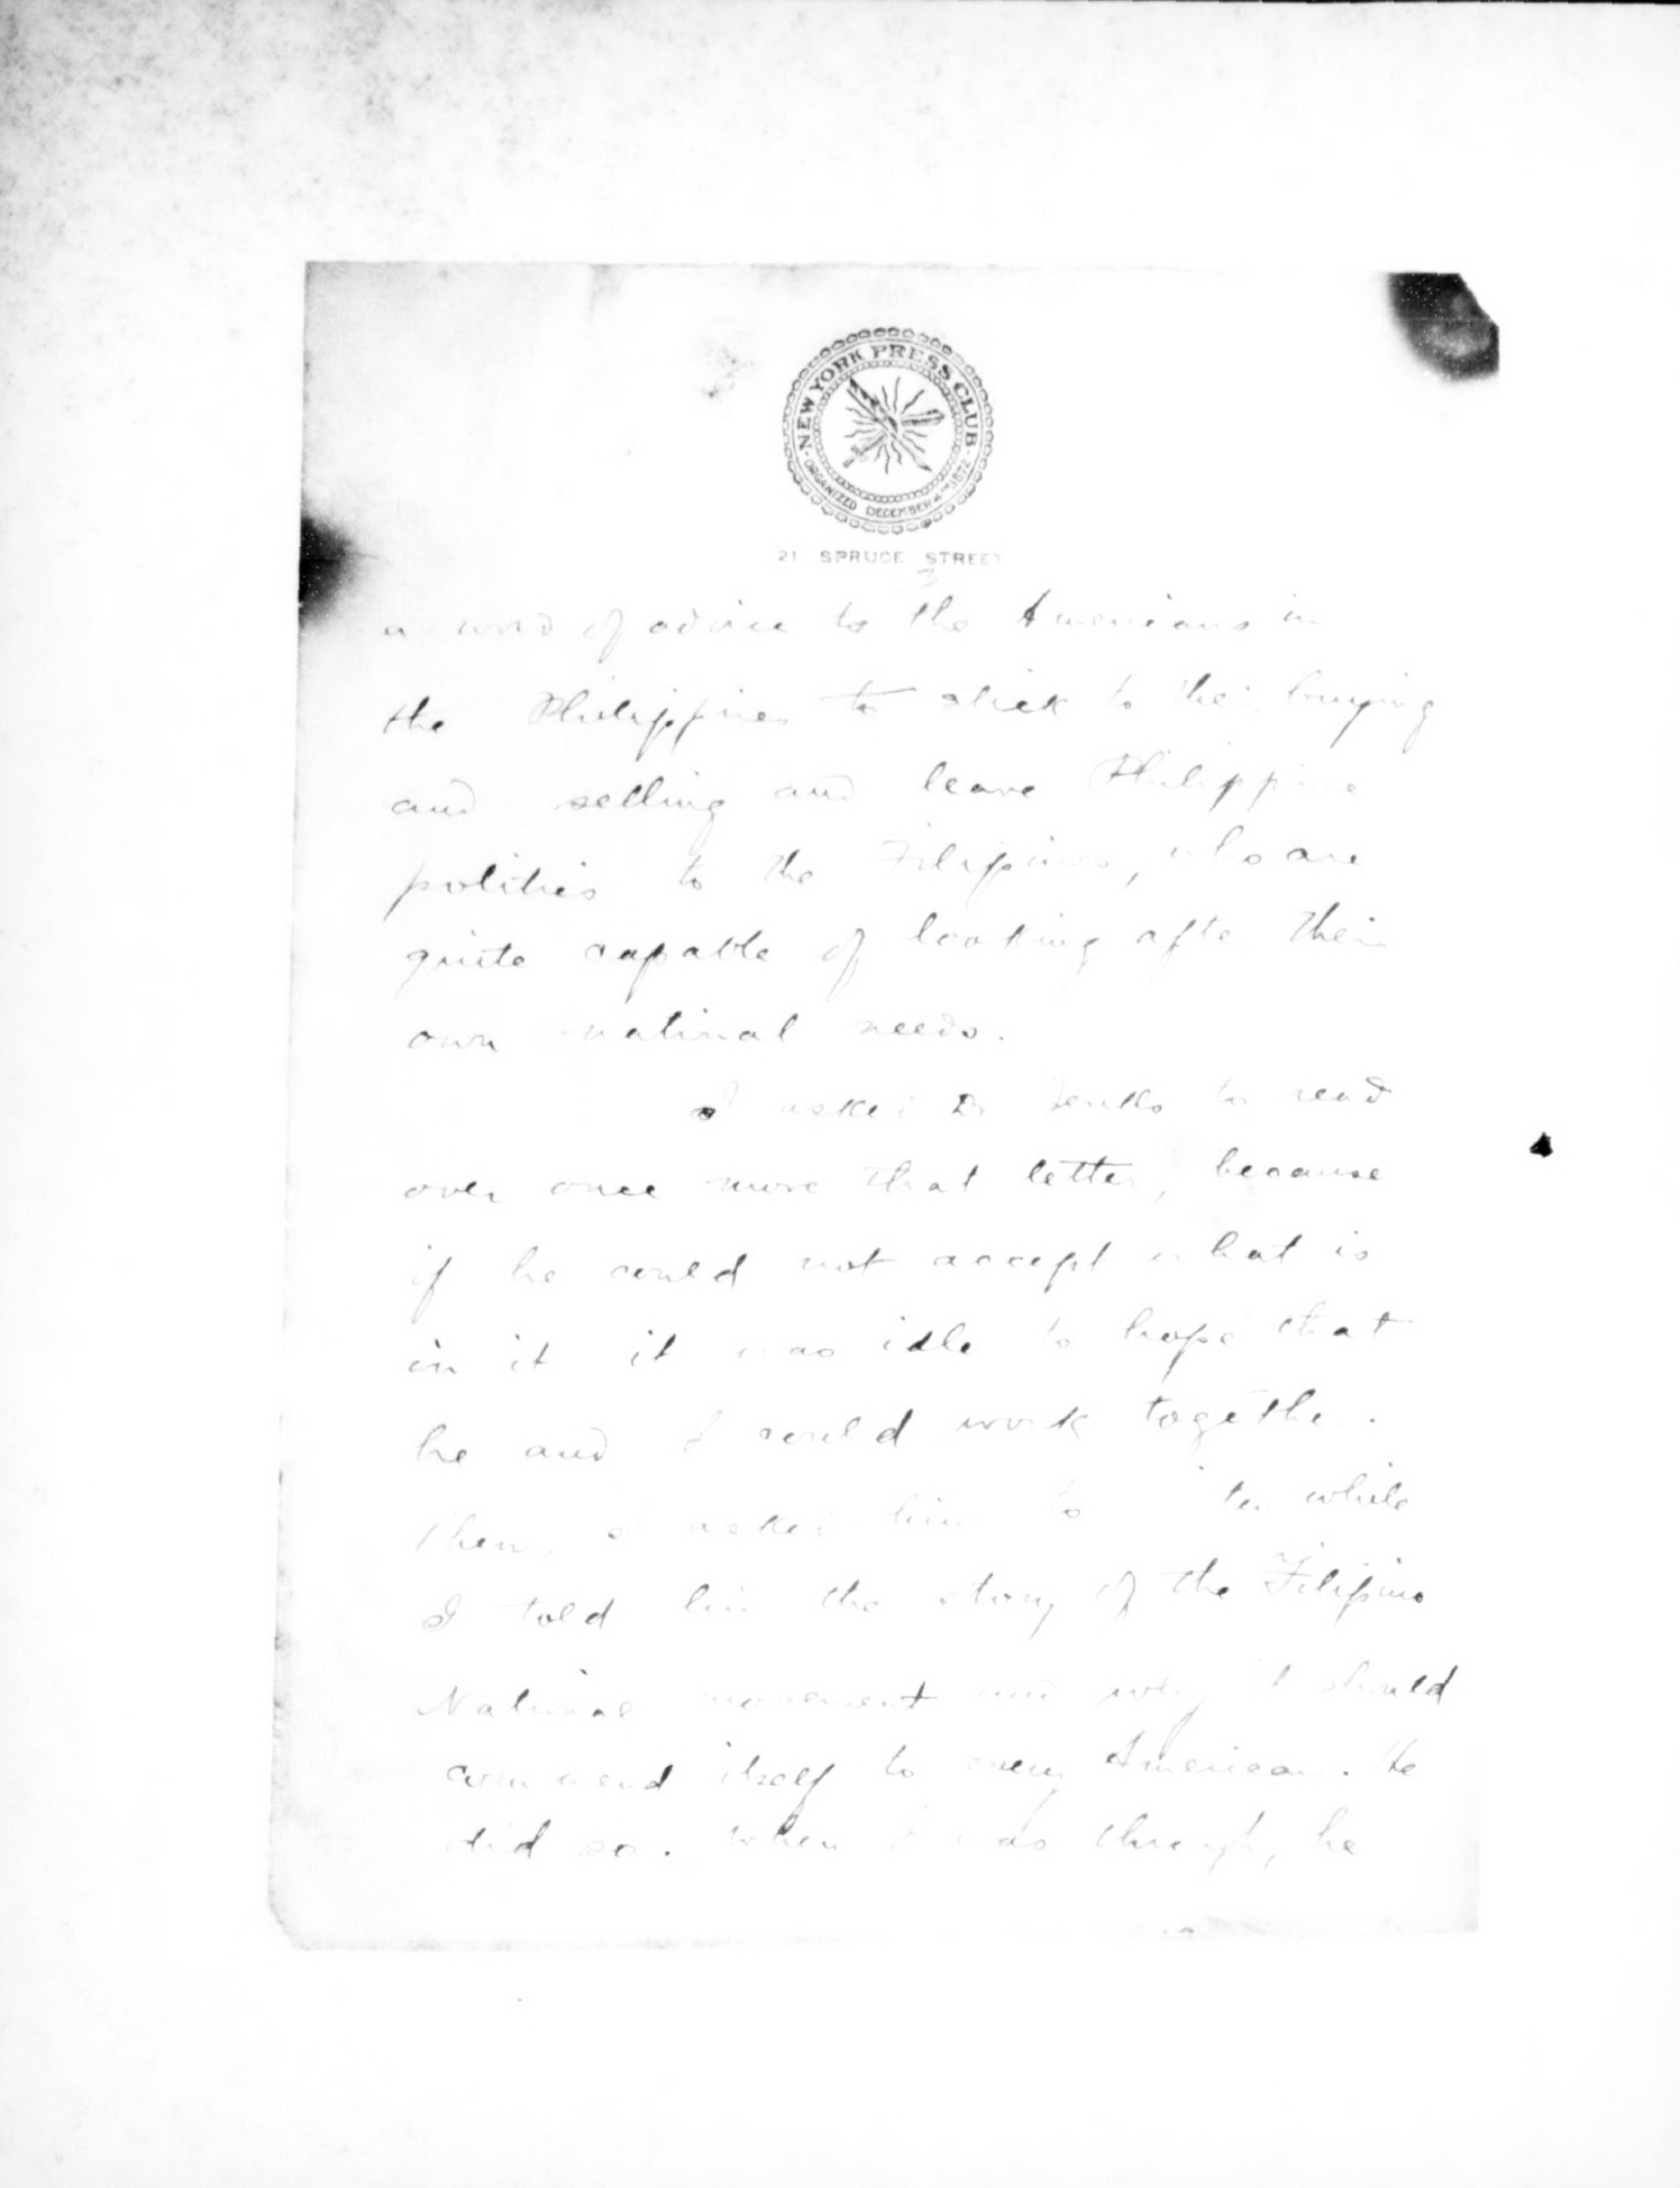 NEW YORK PRESS CLUB
ORGANIZED DECEMBER 4TH 1872
21 SPRUCE STREET
a word of advice to the Americans in
the Philippines to stick to their buying
and selling and leave Philippine
politics to the Filipinos, who are
quite capable of looking after their
own national needs.
I asked Dr Jenks to read
over once more that letter, because
if he could not accept what is
in it it was idle to hope that
he and I could work together.
Then, I asked him to while
I told him the story of the Filipino
National movement and why it should
commend itself to every American. He
did so. When I was through, he